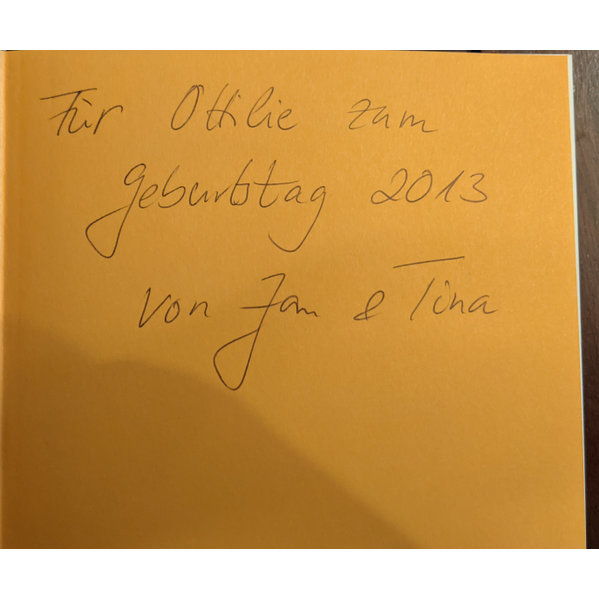 Für Ottilie zum
Geburtstag 2013
von Jan & Tina